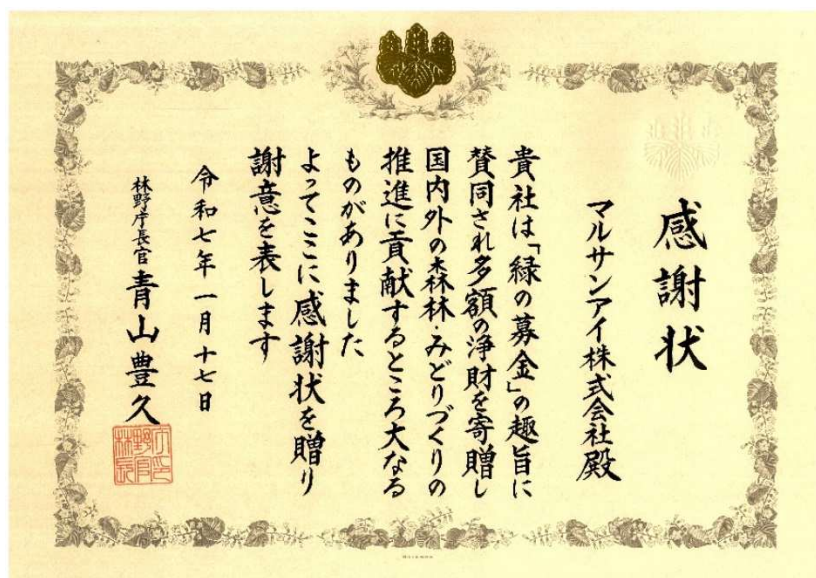 感謝状
マルサンアイ株式会社殿
貴社は「緑の募金」の趣旨に
賛同され多額の浄財を寄贈し
国内外の森林・みどりづくりの
推進に貢献するところ大なる
ものがありました
よってここに感謝状を贈り
謝意を表します
令和七年一月十七日
林野庁長官 青山豊久